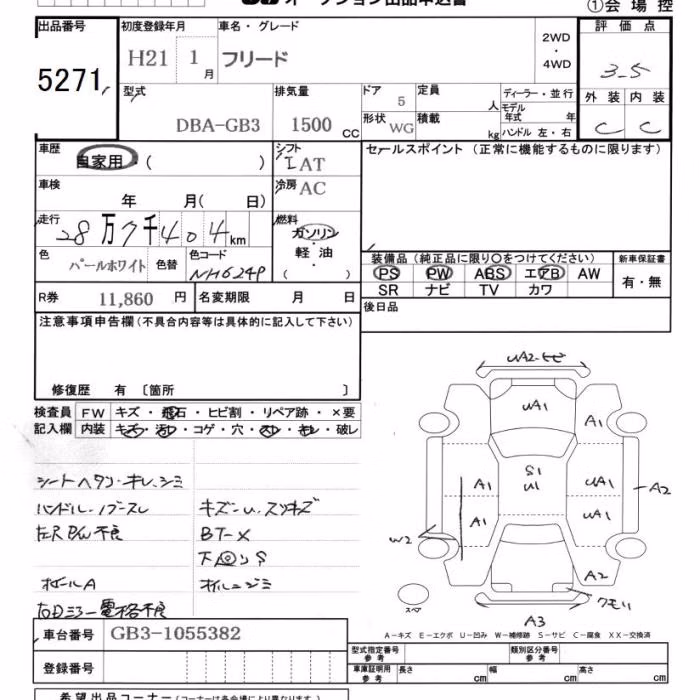 オークション出品申込書
①会場控
出品番号
5271
初度登録年月
H21 1月
車名・グレード
フリード
2WD・4WD
評価点
3.5
外装 内装
C C
型式
DBA-GB3
排気量
1500 CC
ドア 5
形状 WG
定員 人
積載 kg
ディーラー・並行
モデル年式 年
ハンドル 左・右
車歴
自家用・( )
シフト
I AT
セールスポイント (正常に機能するものに限ります)
車検
年 月( 日)
冷房 AC
走行
28万7千404km
燃料
ガソリン・軽油・( )
色
パールホワイト
色替
色コード
NH624P
装備品 (純正品に限り○をつけてください)
新車保証書
PS PW ABS エアB AW
SR ナビ TV カワ
有・無
R券 11,860 円
名変期限 月 日
後日品
注意事項申告欄(不具合内容等は具体的に記入して下さい)
修復歴 有 〔箇所 〕
検査員記入欄
FW キズ・飛石・ヒビ割・リペア跡・×要
内装 キズ・汚レ・コゲ・穴・スレ・キレ・破レ
シートヘタリ・キレ、シミ
ハンドル・ノブースレ
キズ-U、スリキズ
左R P/W不良
BT-X
下回リS
ボールA
右Dミラー電格不良
UA2
UA1
A1
A1
S1
U1
UA1
A2
A1
UA1
W2
A2
クモリ
スペア
A3
A-キズ E-エクボ U-凹み W-補修跡 S-サビ C-腐食 XX-交換済
車台番号
GB3-1055382
登録番号
型式指定番号参考
類別区分番号参考
車庫証明用参考
長さ cm 幅 cm 高さ cm
希望出品コーナー